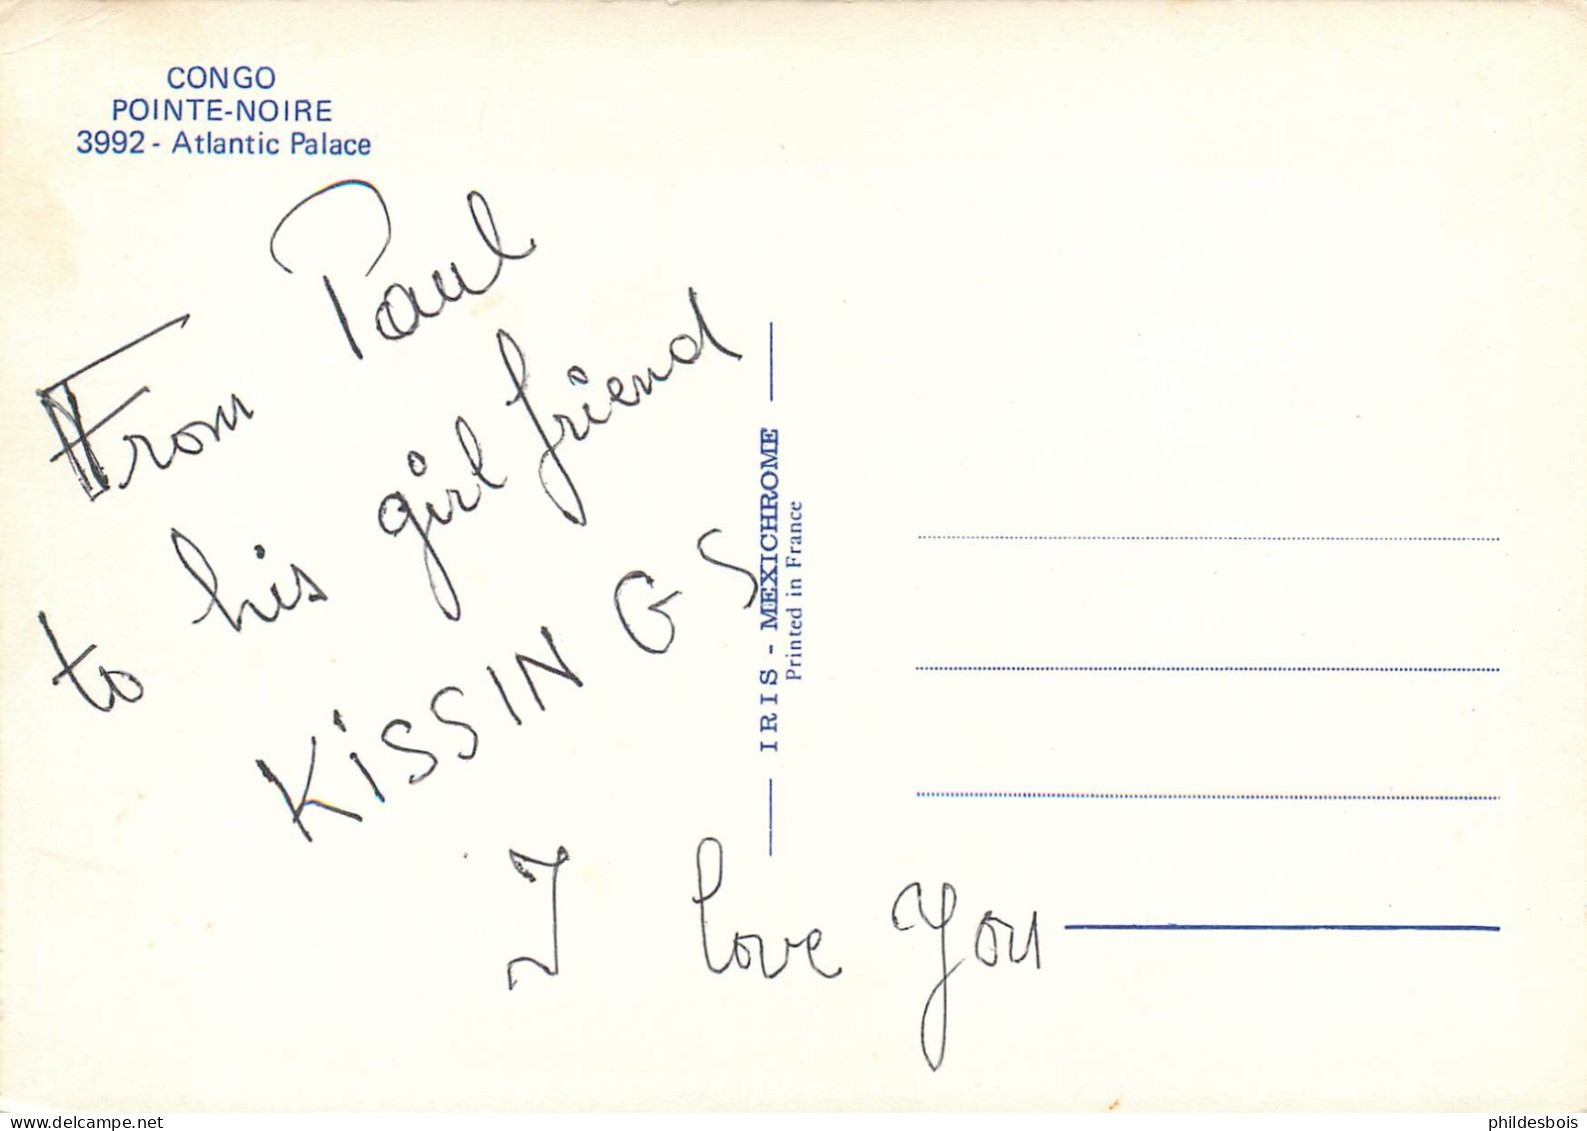 CONGO
POINTE-NOIRE
3992 - Atlantic Palace
From Paul
to his girl friend
KiSSINGS
I love you
IRIS - MEXICHROME
Printed in France
phildesbois